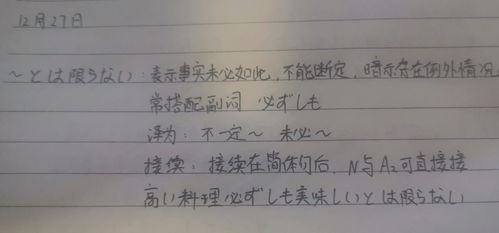 12月27日
～とは限らない：表示事实未必如此，不能断定，暗示存在例外情况
常搭配副词 必ずしも
译为：不一定～ 未必～
接续：接续在简体句后，N与A₂可直接接
高い料理必ずしも美味しいとは限らない